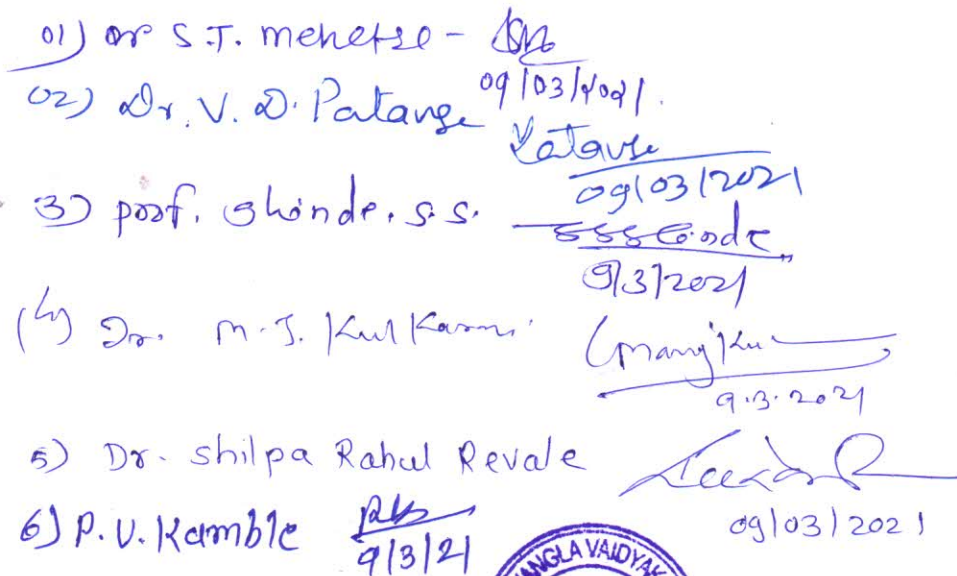 01) Dr S.T. mehetre -
09/03/2021.
02) Dr. V. D. Patange Patange
09/03/2021
3) prof. shinde. s. s. SSShinde
9/3/2021
(4) Dr. M. J. Kulkarni
9.3.2021
5) Dr. shilpa Rahul Revale
09/03/2021
6) P. V. Kamble
9/3/21